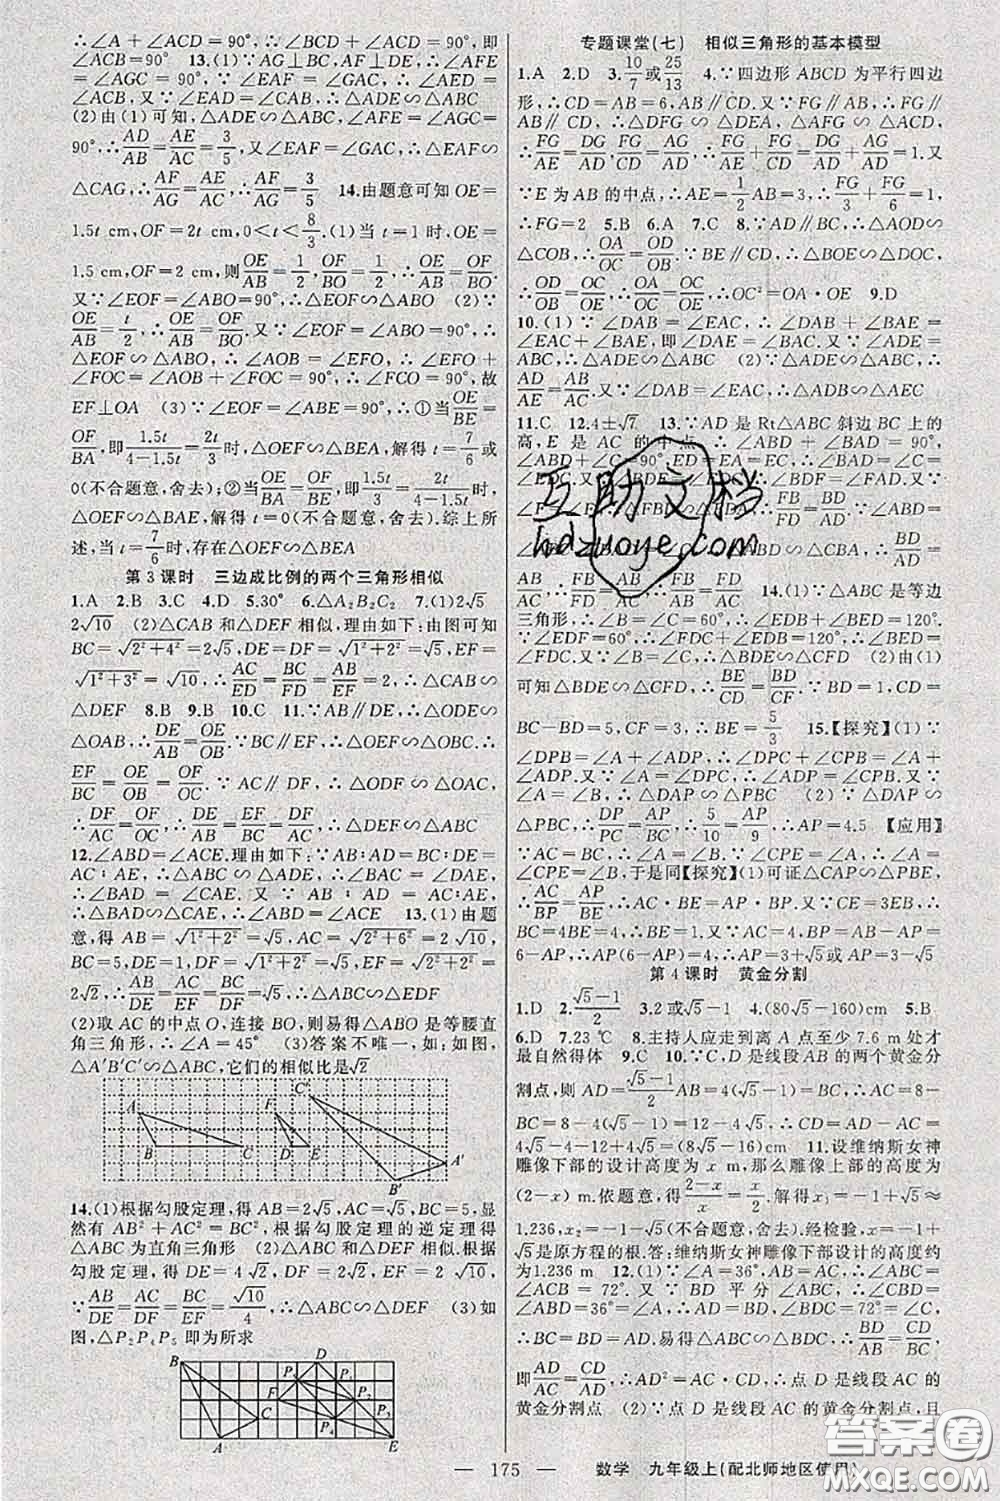 ∴∠A+∠ACD=90°,∴∠BCD+∠ACD=90°,即
∠ACB=90° 13.(1)∵AG⊥BC,AF⊥DE,∴∠AFE
=∠AGC=90°.∵∠EAF=∠GAC,∴∠AED=
∠ACB,又∵∠EAD=∠CAB,∴△ADE∽△ABC
(2)由(1)可知,△ADE∽△ABC,∠AFE=∠AGC=
90°,∴AD/AB=AE/AC=3/5,又∵∠EAF=∠GAC,∴△EAF∽
△CAG,∴AF/AG=AE/AC,∴AF/AG=3/5 14.由题意可知OE=
1.5t cm,OF=2t cm,0<t<8/3.(1)当t=1时,OE=
1.5 cm,OF=2 cm,则OE/AB=1/2,OF/BO=1/2,∴OE/AB=OF/BO.
又∵∠EOF=∠ABO=90°,∴△EOF∽△ABO (2)∵
OE/AB=t/2,OF/BO=t/2,∴OE/AB=OF/BO.又∵∠EOF=∠ABO=90°,∴
△EOF∽△ABO,∴∠AOB=∠EFO,∴∠EFO+
∠FOC=∠AOF+∠FOC=90°,∴∠FCO=90°,故
EF⊥OA (3)∵∠EOF=∠ABE=90°,∴①当OE/BE=
OF/BA,即1.5t/(4-1.5t)=2t/3时,△OEF∽△BEA,解得t=7/6或
0(不合题意,舍去);②当OE/BA=OF/BE,即1.5t/3=2t/(4-1.5t)时,
△OEF∽△BAE,解得t=0(不合题意,舍去).综上所
述,当t=7/6时,存在△OEF∽△BEA
第3课时 三边成比例的两个三角形相似
1.A 2.B 3.C 4.D 5.30° 6.△A₂B₂C₂ 7.(1)2√5
2√10 (2)△CAB和△DEF相似,理由如下:由图可知
BC=√(2²+4²)=2√5,DE=DF=√(1²+2²)=√5,EF=
√(1²+3²)=√10,∴AC/ED=BC/FD=AB/EF=2,∴△CAB∽
△DEF 8.B 9.B 10.C 11.∵AB∥DE,∴△ODE∽
△OAB,∴DE/AB=OE/OB.∵BC∥EF,∴△OEF∽△OBC.∴
EF/BC=OE/OB=OF/OC.∵AC∥DF,∴△ODF∽△OAC,
∴DF/AC=OF/OC,∴DE/AB=EF/BC=DF/AC,∴△DEF∽△ABC
12.∠ABD=∠ACE.理由如下:∵AB:AD=BC:DE=
AC:AE,∴△ABC∽△ADE,∴∠BAC=∠DAE,
∴∠BAD=∠CAE.又∵AB:AD=AC:AE,
∴△BAD∽△CAE,∴∠ABD=∠ACE 13.(1)由题
意,得AB=√(1²+2²)=√5,AC=√(2²+6²)=2√10,
BC=5,DE=√(1²+2²)=√5,DF=√(1²+2²)=√5,EF=
∴AB/DE=AC/EF=BC/DF,∴△ABC∽△EDF
(2)取AC的中点O,连接BO,则易得△ABO是等腰直
角三角形,∴∠A=45° (3)答案不唯一,如:如图,
△A′B′C′∽△ABC,它们的相似比是√2
A B C F D E C′ A′ B′
14.(1)根据勾股定理,得AB=2√5,AC=√5,BC=5,显
然有AB²+AC²=BC²,根据勾股定理的逆定理得
△ABC为直角三角形 (2)△ABC和△DEF相似.根据
勾股定理,得DE=4√2,DF=2√2,EF=2√10,
∵AB/DE=AC/DF=BC/EF=√10/4,∴△ABC∽△DEF (3)如
图,△P₂P₄P₅即为所求
B D P₁ P₅ P₂ F C P₃ P₄ A E
专题课堂(七) 相似三角形的基本模型
1.A 2.D 3.10/7或25/13 4.∵四边形ABCD为平行四边
形,∴CD=AB=6,AB∥CD.又∵FG∥AB,∴FG∥
CD,∴△DFG∽△DEA,△AFG∽△ACD,∴
FG/AE=DG/DA,FG/CD=AG/AD,∴FG/AE+FG/CD=DG/DA+AG/AD=1.又
∵E为AB的中点,∴AE=1/2AB=3,∴FG/3+FG/6=1,
∴FG=2 5.B 6.A 7.C 8.∵AD∥BC,∴△AOD∽
△COB,∴OA/OC=OD/OB.∵BE∥CD,∴△BOE∽△DOC,
∴OD/OB=OC/OE,∴OA/OC=OC/OE,∴OC²=OA·OE 9.D
10.(1)∵∠DAB=∠EAC,∴∠DAB+∠BAE=
∠EAC+∠BAE,即∠DAE=∠BAC.又∵∠ADE=
∠ABC,∴△ADE∽△ABC (2)∵△ADE∽△ABC,∴
AD/AE=AB/AC.又∵∠DAB=∠EAC,∴△ABD∽△AEC
11.C 12.4±√7 13.∵AD是Rt△ABC斜边BC上的
高,E是AC的中点,∴∠ABD+∠BAD=90°,
∠ABD+∠C=90°,ED=EA=EC,∴∠BAD=∠C=
△ABD,∴
BD/AD=
AB/AC,∴FB/FD=AB/AC 14.(1)∵△ABC是等边
三角形,∴∠B=∠C=60°,∴∠EDB+∠BED=120°.
∵∠EDF=60°,∴∠FDC+∠EDB=120°,∴∠BED=
∠FDC.又∵∠B=∠C,∴△BDE∽△CFD (2)由(1)
可知△BDE∽△CFD,∴BE/CD=BD/CF.∵BD=1,CD=
BC-BD=5,CF=3,∴BE=5/3 15.【探究】(1)∵
∠DPB=∠A+∠ADP,∴∠DPC+∠CPB=∠A+
∠ADP.又∵∠A=∠DPC,∴∠ADP=∠CPB.又∵
∠A=∠B,∴△DAP∽△PBC (2)∵△DAP∽
△PBC,∴PD/PC=AP/BC,∴5/10=AP/9,∴AP=4.5 【应用】
∵AC=BC,∴∠A=∠B.∵∠CPE=∠A,∴∠A=
∠CPE=∠B,于是同【探究】(1)可证△CAP∽△PBE,
∴AC/BP=AP/BE,∴AC·BE=AP·BP.又∵CE=3EB,∴
BC=4BE=4,∴BE=1.又∵AC=BC=4,BP=AB-AP=
6-AP,∴AP(6-AP)=4,∴AP=3+√5或3-√5
第4课时 黄金分割
1.D 2.(√5-1)/2 3.2或√5-1 4.(80√5-160)cm 5.B
6.D 7.23℃ 8.主持人应走到离A点至少7.6 m处才
最自然得体 9.C 10.∵C,D是线段AB的两个黄金分
割点,则AD=(√5-1)/2AB=4(√5-1)=BC,∴AC=8-
BC=8-4(√5-1)=12-4√5,∴CD=AD-AC=
4√5-4-12+4√5=(8√5-16)cm 11.设维纳斯女神
雕像下部的设计高度为x m,那么雕像上部的高度为
(2-x)m.依题意,得(2-x)/x=x/2,解得x₁=-1+√5≈
1.236,x₂=-1-√5(不合题意,舍去).经检验,x=-1+
√5是原方程的根.答:维纳斯女神雕像下部设计的高度约
为1.236 m 12.(1)∵∠A=36°,AB=AC,∴∠ABC=
∠ACB=72°.又∵BD平分∠ABC,∴∠CBD=
∠ABD=36°=∠A,∴AD=BD,∠BDC=72°=∠C,
∴BC=BD=AD.易得△ABC∽△BDC,∴
即AD/AC=CD/AD,∴点D是线段AC的
黄金分割点 (2)∵点D是线段AC的黄金分割点,且
互助文档
hdzuoye.com
— 175 — 数学 九年级上(配北师地区使用)
答案圈
MXQE.COM